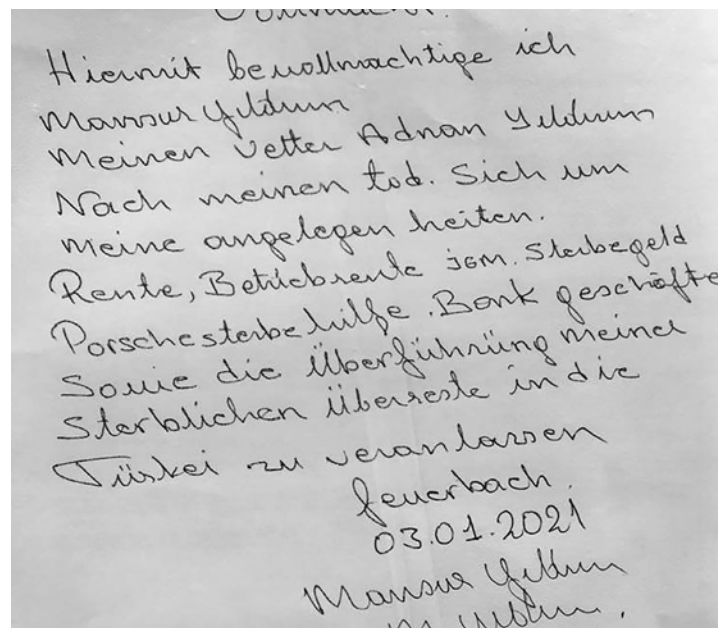 Vollmacht.
Hiermit bevollmachtige ich
Mansur Yildirim
Meinen Vetter Adnan Yildirim
Nach meinen tod. Sich um
meine angelegen heiten.
Rente, Betriebsrente IGM. Sterbegeld
Porschesterbehilfe. Bank geschäfte
Sowie die Überführüng meiner
Sterblichen überreste in die
Türkei zu veranlassen
Feuerbach.
03.01.2021
Mansur Yildirim
M. Yildirim.